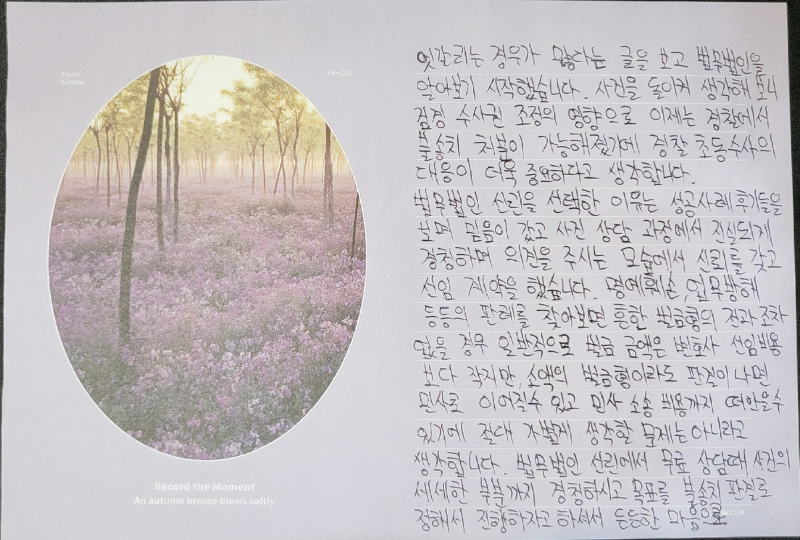 Travel
Autumn
film.005
엇갈리는 경우가 많다는 글을 보고 법무법인을
알아보기 시작했습니다. 사건을 돌이켜 생각해 보니
검경 수사권 조정의 영향으로 이제는 경찰에서
불송치 처분이 가능해졌기에 경찰 초동수사의
대응이 더욱 중요하다고 생각합니다.
법무법인 선린을 선택한 이유는 성공사례 후기들을
보며 믿음이 갔고 사건 상담 과정에서 진실되게
경청하며 의견을 주시는 모습에서 신뢰를 갖고
선임 계약을 했습니다. 명예훼손, 업무방해
등등의 판례를 찾아보면 흔한 벌금형의 전과조차
없을 경우 일반적으로 벌금 금액은 변호사 선임비용
보다 작지만, 소액의 벌금형이라도 판결이 나면
민사로 이어질수 있고 민사 소송 비용까지 떠안을수
있기에 절대 가볍게 생각할 문제는 아니라고
생각합니다. 법무법인 선린에서 무료 상담때 사건의
세세한 부분까지 경청하시고 목표를 불송치 판결로
정해서 진행하자고 하셔서 든든한 마음으로
Record the Moment
An autumn breeze blows softly